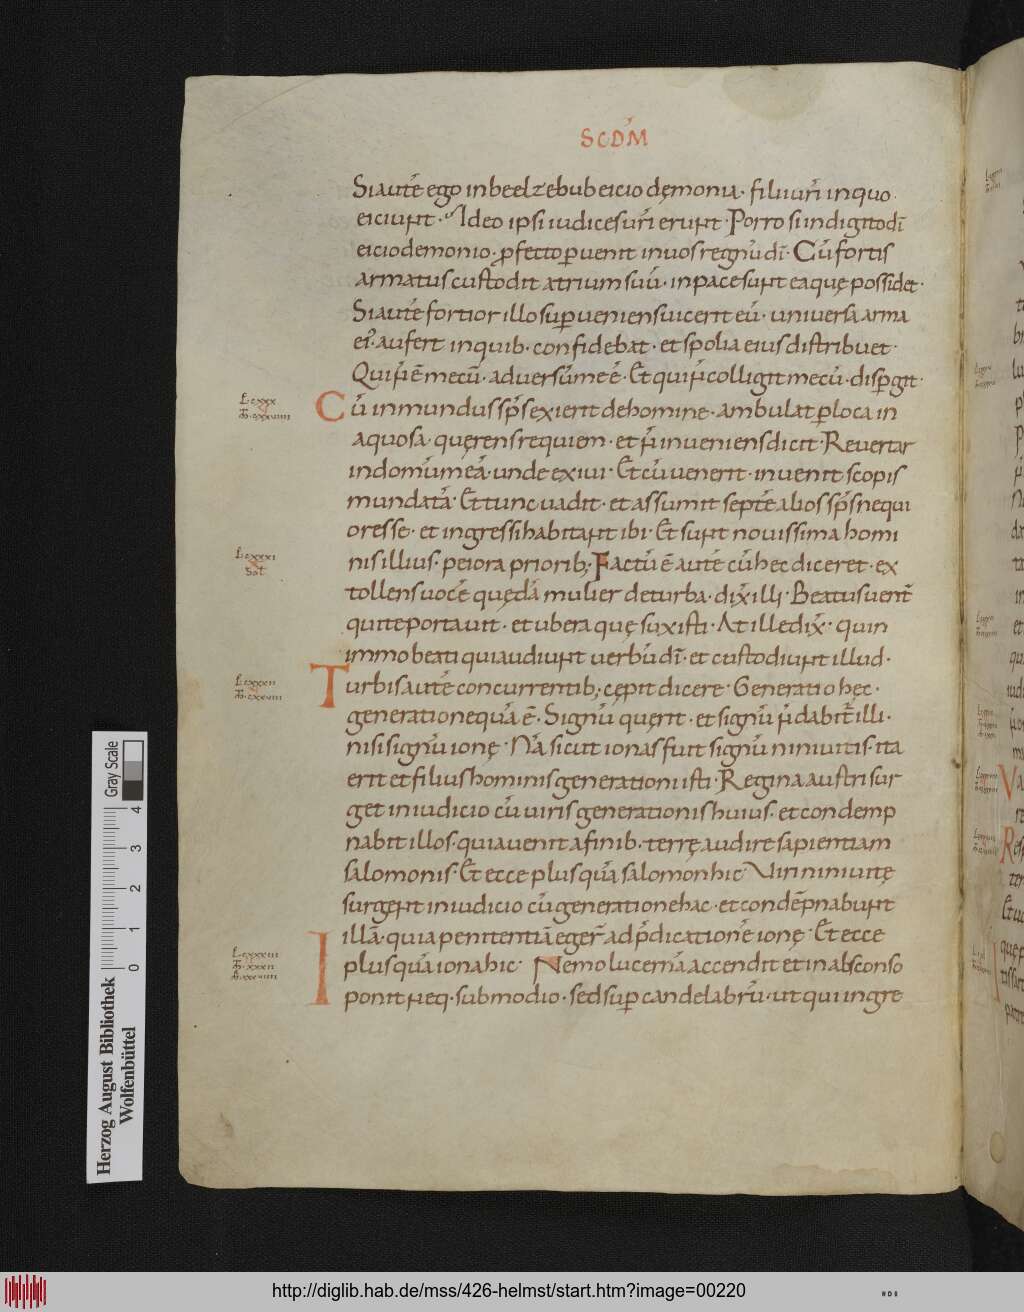 SCDM̄
Si autē ego in beelzebub eicio dęmonia· filii ur̄i in quo
eiciuNt· Ideo ipsi iudices ur̄i eruNt· Porro si in digito dī
eicio demonio· ꝓfecto ꝑuenit in uos regnū dī· Cū fortis
armatus custodit atrium suū· in pace suNt ea quę possidet·
Si autē fortior illo suꝑueniens uicerit eū· universa arma
ei᾽ aufert in quib· confidebat· et spolia eius distribuet·
Qui ñ ē mecū· adversū me ē· Et qui ñ colligit mecū· disꝑgit·
Cū inmundus sp̄s exierit de homine· ambulat ꝑ loca in
aquosa· quęrens requiem· et ñ inveniens dicit· Revertar
in domū meā· unde exiui· Et cū uenerit· invenit scopis
mundatā· Et tunc uadit· et assumit septē alios sp̄s nequi
ores se· et ingressi habitaNt ibi· Et suNt novissima homi
nis illius· peiora priorib; Factū ē autē cū hec diceret· ex
tollens uocē quędā mulier de turba· dix̄ illi· Beatus uent̄
qui te portauit· et ubera quę suxisti· At ille dix̄· quin
immo beati qui audiuNt uerbū dī· et custodiuNt illud·
Turbis autē concurrentib; cępit dicere· Generatio hęc·
generatio nequā ē· Signū quęrit· et signū ñ dabit̄ illi·
nisi signū ionę· Nā sicut ionas fuit signū niniuitis· ita
erit et filius hominis generationi isti· Regina austri sur
get in iudicio cū uiris generationis huius· et condemp
nabit illos· quia uenit a finib· terrę audire sapientiam
salomonis· Et ecce plus quā salomon hic· Viri niniuitę
surgeNt in iudicio cū generatione hac· et condēpnabuNt
illā· quia penitentiā eger̄ ad p̄dicationē ionę· Et ecce
plus quā iona hic· Nemo lucernā accendit et in absconso
ponit Neq· sub modio· sed suꝑ candelabrū· ut qui ingre
Herzog August Bibliothek
Wolfenbüttel
0 1 2 3 4
Gray Scale
http://diglib.hab.de/mss/426-helmst/start.htm?image=00220